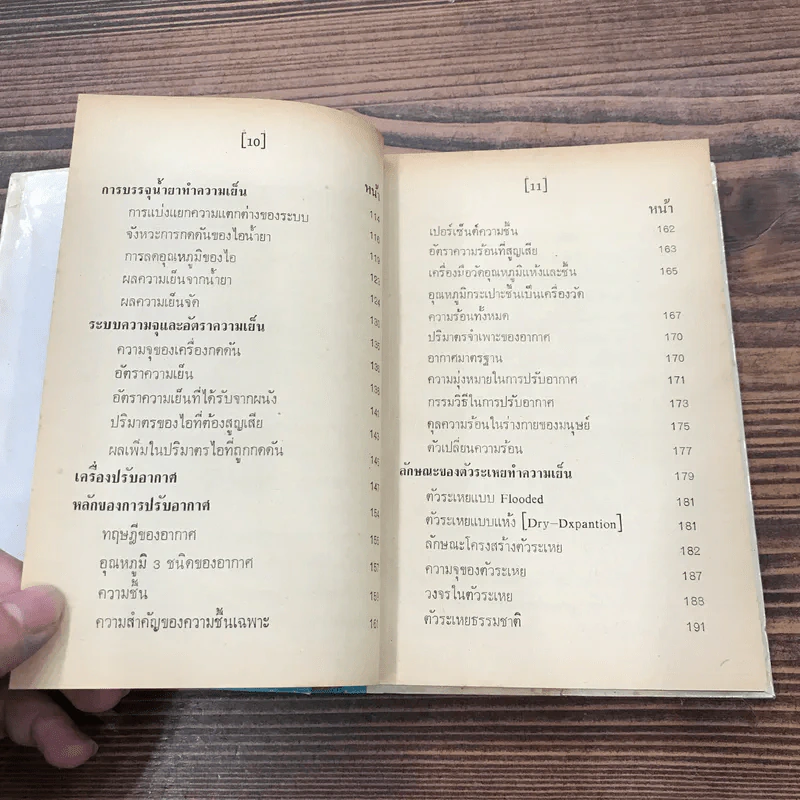 [10]
การบรรจุน้ำยาทำความเย็น หน้า
การแบ่งแยกความแตกต่างของระบบ 114
จังหวะการกดดันของไอน้ำยา 116
การลดอุณหภูมิของไอ 119
ผลความเย็นจากน้ำยา 123
ผลความเย็นจัด 124
ระบบความจุและอัตราความเย็น 130
ความจุของเครื่องกดดัน 135
อัตราความเย็น 136
อัตราความเย็นที่ได้รับจากผนัง 138
ปริมาตรของไอที่ต้องสูญเสีย 140
ผลเพิ่มในปริมาตรไอที่ถูกกดดัน 143
เครื่องปรับอากาศ 145
หลักของการปรับอากาศ 147
ทฤษฎีของอากาศ 154
อุณหภูมิ 3 ชนิดของอากาศ 155
ความชื้น 157
ความสำคัญของความชื้นเฉพาะ 159
161
[11]
หน้า
เปอร์เซ็นต์ความชื้น 162
อัตราความร้อนที่สูญเสีย 163
เครื่องมือวัดอุณหภูมิแห้งและชื้น 165
อุณหภูมิกระเปาะชื้นเป็นเครื่องวัด
ความร้อนทั้งหมด 167
ปริมาตรจำเพาะของอากาศ 170
อากาศมาตรฐาน 170
ความมุ่งหมายในการปรับอากาศ 171
กรรมวิธีในการปรับอากาศ 173
ดุลความร้อนในร่างกายของมนุษย์ 175
ตัวเปลี่ยนความร้อน 177
ลักษณะของตัวระเหยทำความเย็น 179
ตัวระเหยแบบ Flooded 181
ตัวระเหยแบบแห้ง [Dry-Dxpantion] 181
ลักษณะโครงสร้างตัวระเหย 182
ความจุของตัวระเหย 187
วงจรในตัวระเหย 188
ตัวระเหยธรรมชาติ 191